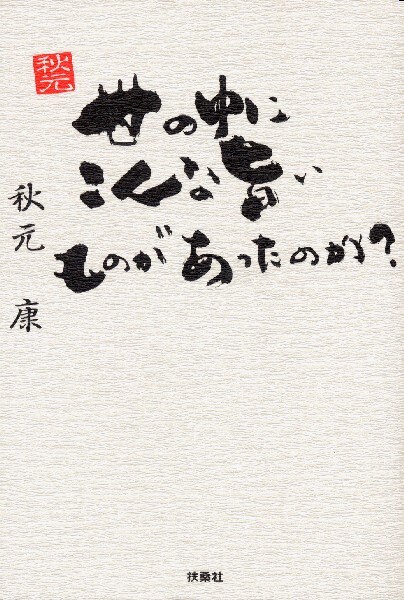 秋元
世の中に
こんな旨い
ものがあったのか？
秋元 康
扶桑社